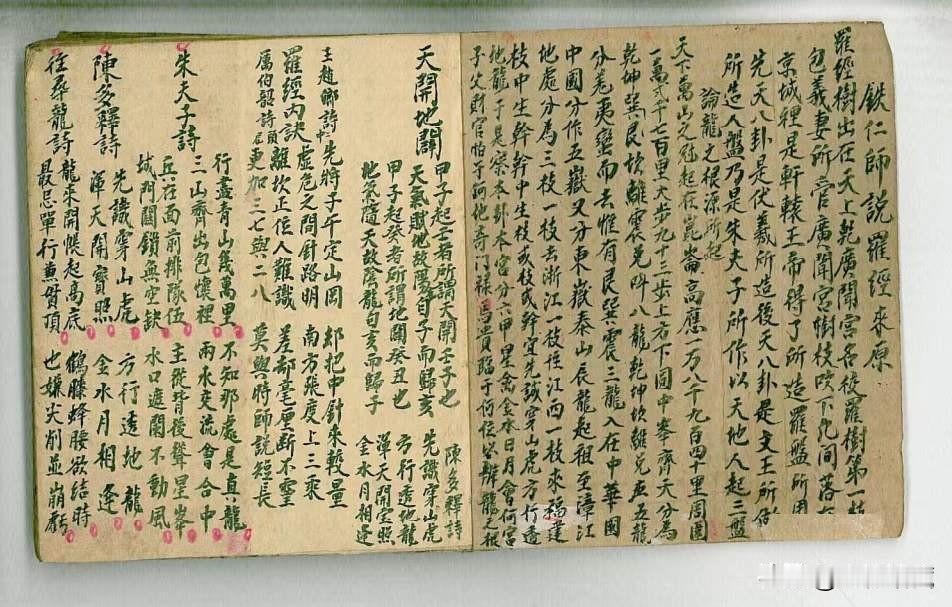 鉄仁師說羅經來原
羅經樹出在天上乾廣聞宮吾梭羅樹第一枝
包義妻所管廣聞宮樹枝吹下凡间落在
京城裡是軒轅王帝得了所造羅盤所用
先天八卦是伏羲所造後天八卦是文王所做
所造人盤乃是朱夫子所作以天地人起三盤
論龍之根源所起
天下萬山之冠起在崑崙高應一万八千九百四十里周圍
一萬弍千七百里大步九十三步上方下圓中峯齊天分為
乾坤巽艮坎離震兌叫八龍乾坤坎離兌五龍
分巻夷蠻而去惟有艮巽震三龍入在中華國
中國分作五嶽又分東嶽泰山辰龍起祖至漳江
地處分為三枝一枝去浙江一枝往江西一枝來福建
枝中生幹幹中生枝或枝或幹宜先識穿山虎方行透
地龍于是察本卦本宮分六甲星禽金本日月會何宮
子父財官怕于何地寿门禄馬贵臨于何位以辨龍之根
天開地闢
甲子起于者所謂天開于子也
天氣賦地故陽旬子而歸亥
甲子起癸者所謂地闢癸丑也
地氣隨天故陰龍旬亥而歸子
陳多釋詩
先識穿山虎
方行透地龍
渾天開宝照
金水月相逢
王趙鄉詩中
先將子午定山岡
却把中針來較量
羅經內訣
虛危之間針路明
南方張度上三乘
離坎正位人難識
差却毫厘断不靈
厲伯韶詩尾
更加三七與二八
莫與時師説短長
朱夫子詩
行盡青山幾萬里
不知那處是真龍
三山齊出包懷裡
兩水交流會合中
兵在面前排隊伍
主從背後聳星峯
城門關鎖無空缺
水口遮闌不動風
陳多釋詩
先識穿山虎
方行透地龍
渾天開寶照
金水月相逢
往尋龍詩
龍來開帳起高底
鶴膝蜂腰欲結時
最忌單行無貿頂
也嫌尖削並崩虧